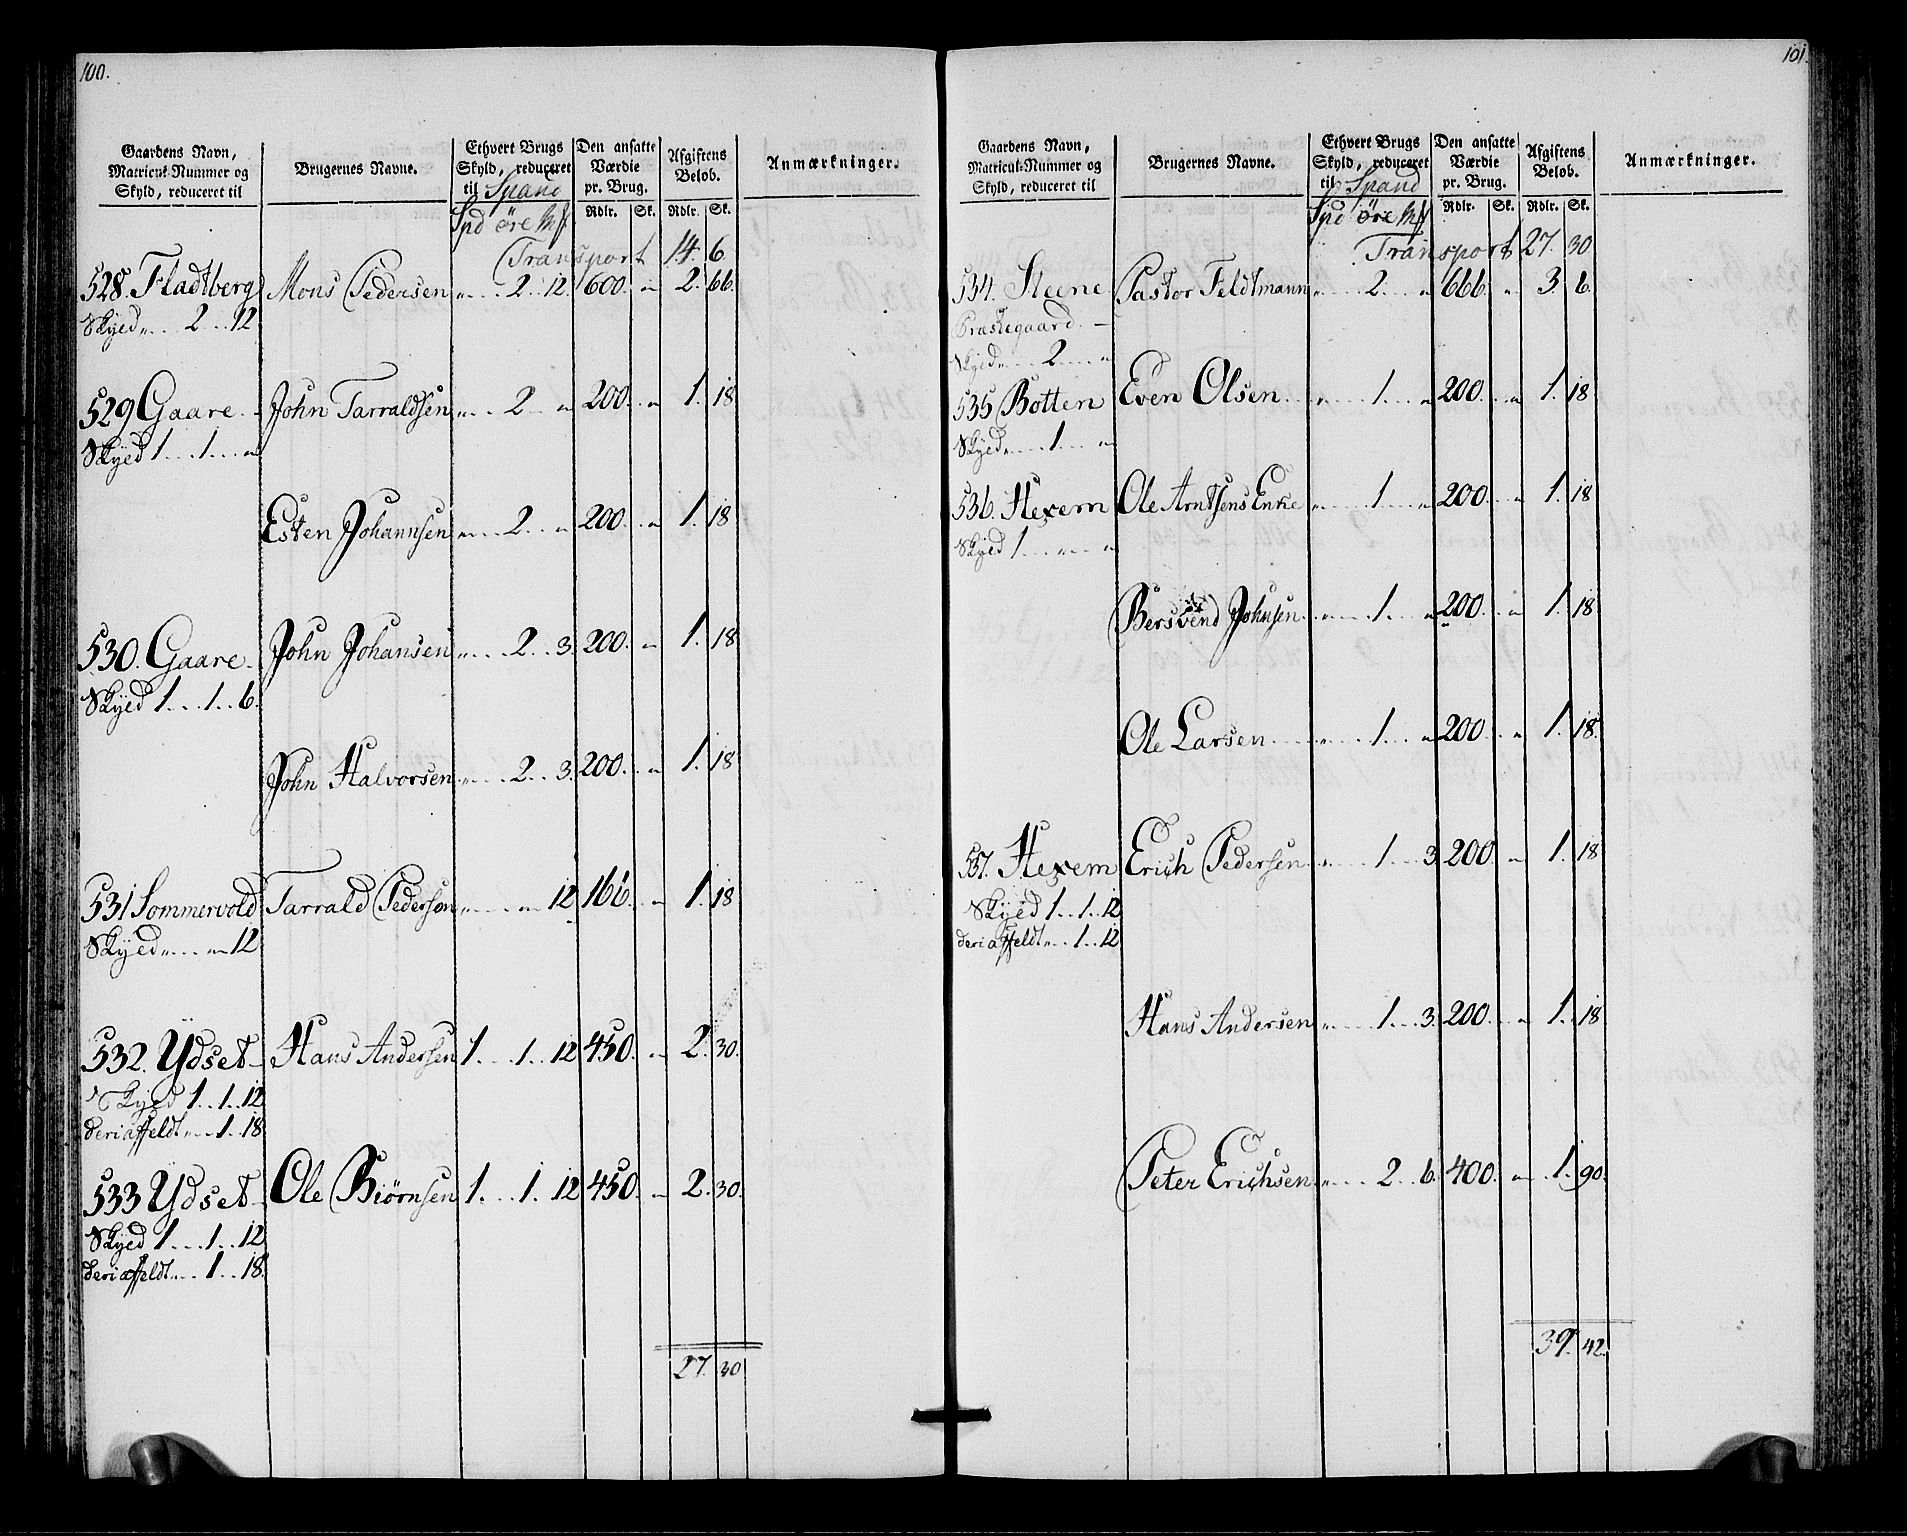 100.
Gaardens Navn, Matricul-Nummer og Skyld, reduceret til | Brugernes Navne. | Ethvert Brugs Skyld, reduceret til Spand | Den ansatte Værdie pr. Brug. | Afgiftens Beløb. | Anmærkninger.
Spd öre Mf | Rdlr. | Sk. | Rdlr. | Sk.
Transport 14. 6.
528. Fladtberg | Mons Pedersen | „ 2 12. | 600. „ | 2. 66.
Skyed „ 2 12
529 Gaare | John Tarraldsen | „ 2 „ | 200. „ | 1. 18
Skyed 1 1 „
Esten Johannsen | „ 2 „ | 200. „ | 1. 18
530. Gaare | John Johansen | „ 2 3. | 200. „ | 1. 18
Skyed 1 1 6.
John Halvorsen | „ 2 3. | 200. „ | 1. 18
531 Sommervold | Tarrald Pedersen | „ „ 12 | 166. „ | 1. 18
Skyed „ „ 12
532. Ydset | Hans Andersen | 1. 1 12 | 450. „ | 2. 30.
Skyed 1 1 12
deri affeldt „ 1 18
533 Ydset | Ole Biörnsen | 1. 1. 12 | 450. „ | 2. 30.
Skyed 1 1 12
deri affeldt „ 1 18.
27. 30
101.
Gaardens Navn, Matricul-Nummer og Skyld, reduceret til | Brugernes Navne. | Ethvert Brugs Skyld, reduceret til Spand | Den ansatte Værdie pr. Brug. | Afgiftens Beløb. | Anmærkninger.
Spd öre Mf | Rdlr. | Sk. | Rdlr. | Sk.
Transport 27. 30
534. Steene | Pastor Feldtmann | „ 2 „ | 666. „ | 3. 6.
Præstegaard
Skyed „ 2 „
535 Botten | Even Olsen | „ 1 „ | 200. „ | 1. 18
Skyed „ 1 „
536. Hexem | Ole Arntsens Enke | „ 1 „ | 200. „ | 1. 18
Skyed 1 „ „
Bersvend Johnsen | „ 1 „ | 200. „ | 1. 18
Ole Larsen | „ 1 „ | 200. „ | 1. 18.
537. Hexem | Erich Pedersen | „ 1 3 | 200. „ | 1. 18
Skyed 1 1 12
deri affeldt „ 1 12
Hans Andersen | „ 1 3. | 200. „ | 1. 18
Peter Erichsen | „ 2 6. | 400. „ | 1. 90.
39. 42.